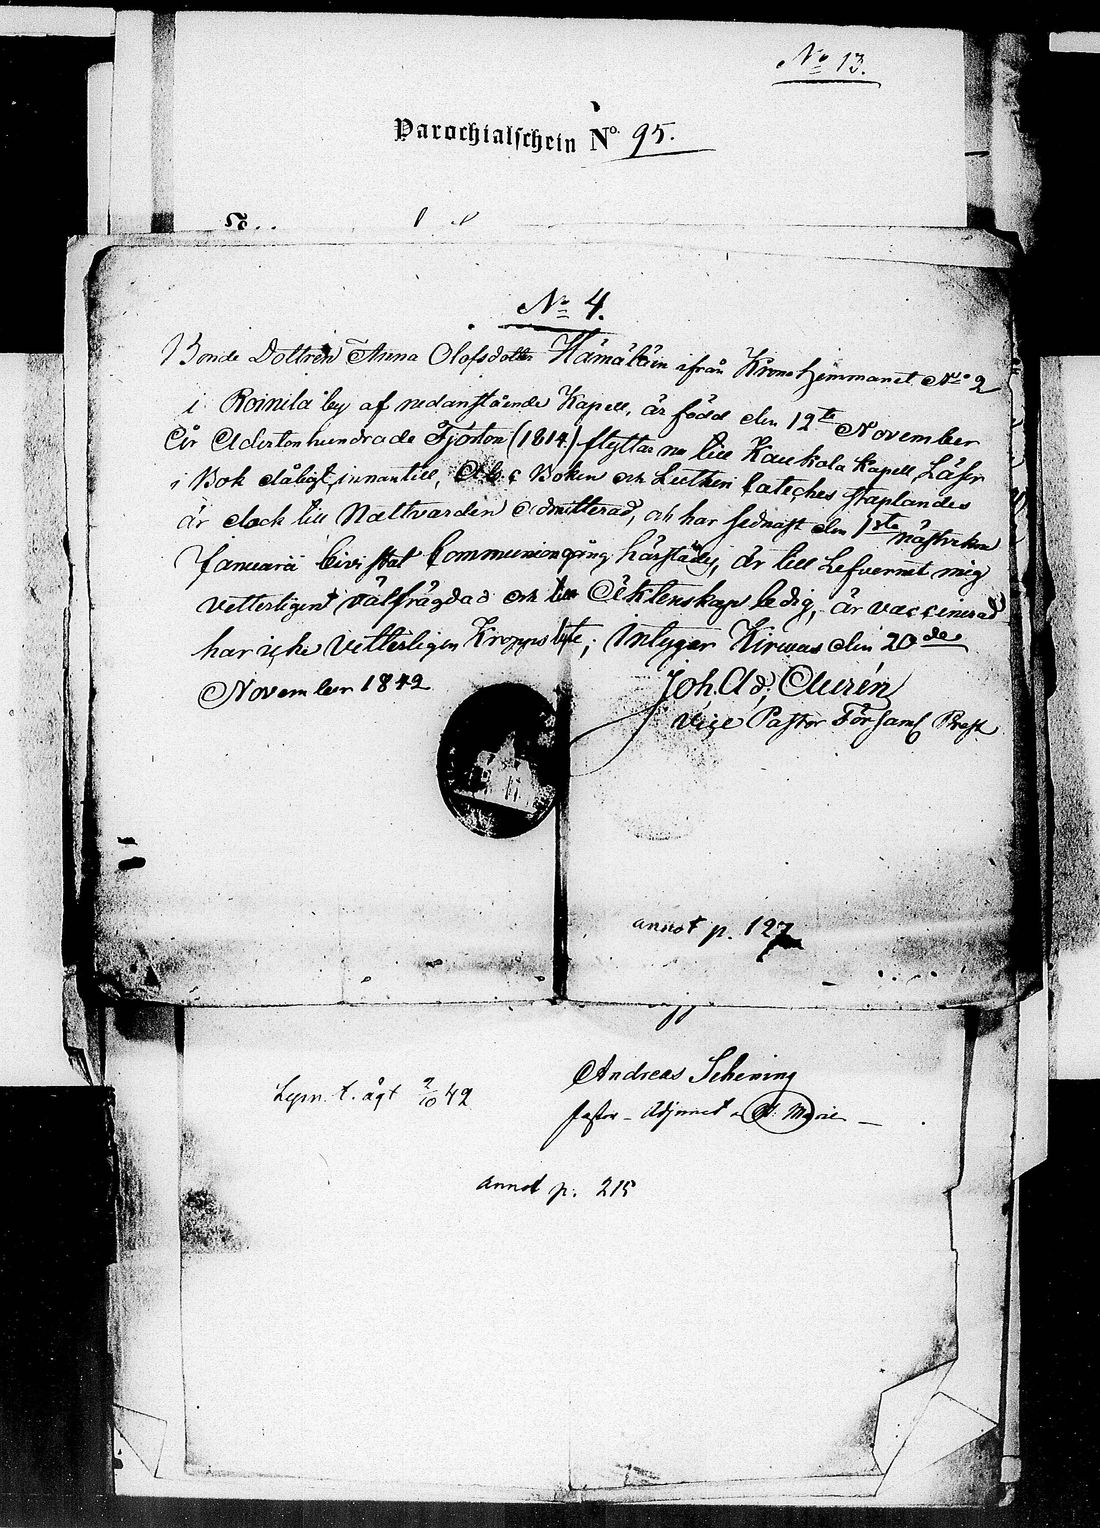 No 13.
Parochialschein No. 95.
No 4.
Bonde Dottren Anna Olofsdotter Hämäläin ifrån Krono Hemmanet No 2
i Roinila by af nedanstående Kapell, är född den 12te November
År Adertonhundrade Fjorton (1814) flyttar nu till Kaukola Kapell, Läser
i Bok dåligt innantill, Abc Boken och Lutheri Cateches staplandes
är dock till Nattvarden admitterad, och har sednast den 1ste nästvikne
Januarii bivistat Communiongång härstädes, är till Lefvernet mig
vetterligent välfrägdad och till Äktenskap ledig, är vaccinerad
har icke vetterligen Kroppslyte; intygar Kirwus den 20de
November 1842
Joh. Ad. Aurén
Vice Pastor Församl Prest
annot p. 127
Andreas Schening
Lysn. t. ägt 2/10 42
Pastor - Adjunct St Marie
annot p. 215